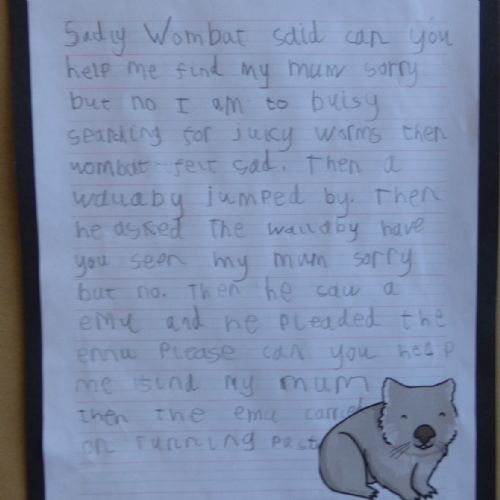 Sadly Wombat said can you
help me find my mum sorry
but no I am to buisy
searching for juicy worms then
wombat felt sad. Then a
wallaby jumped by. Then
he asked The wallaby have
you seen my mum sorry
but no. Then he saw a
emu and he pleaded the
emu Please can you help
me my mum
then the emu
on running past